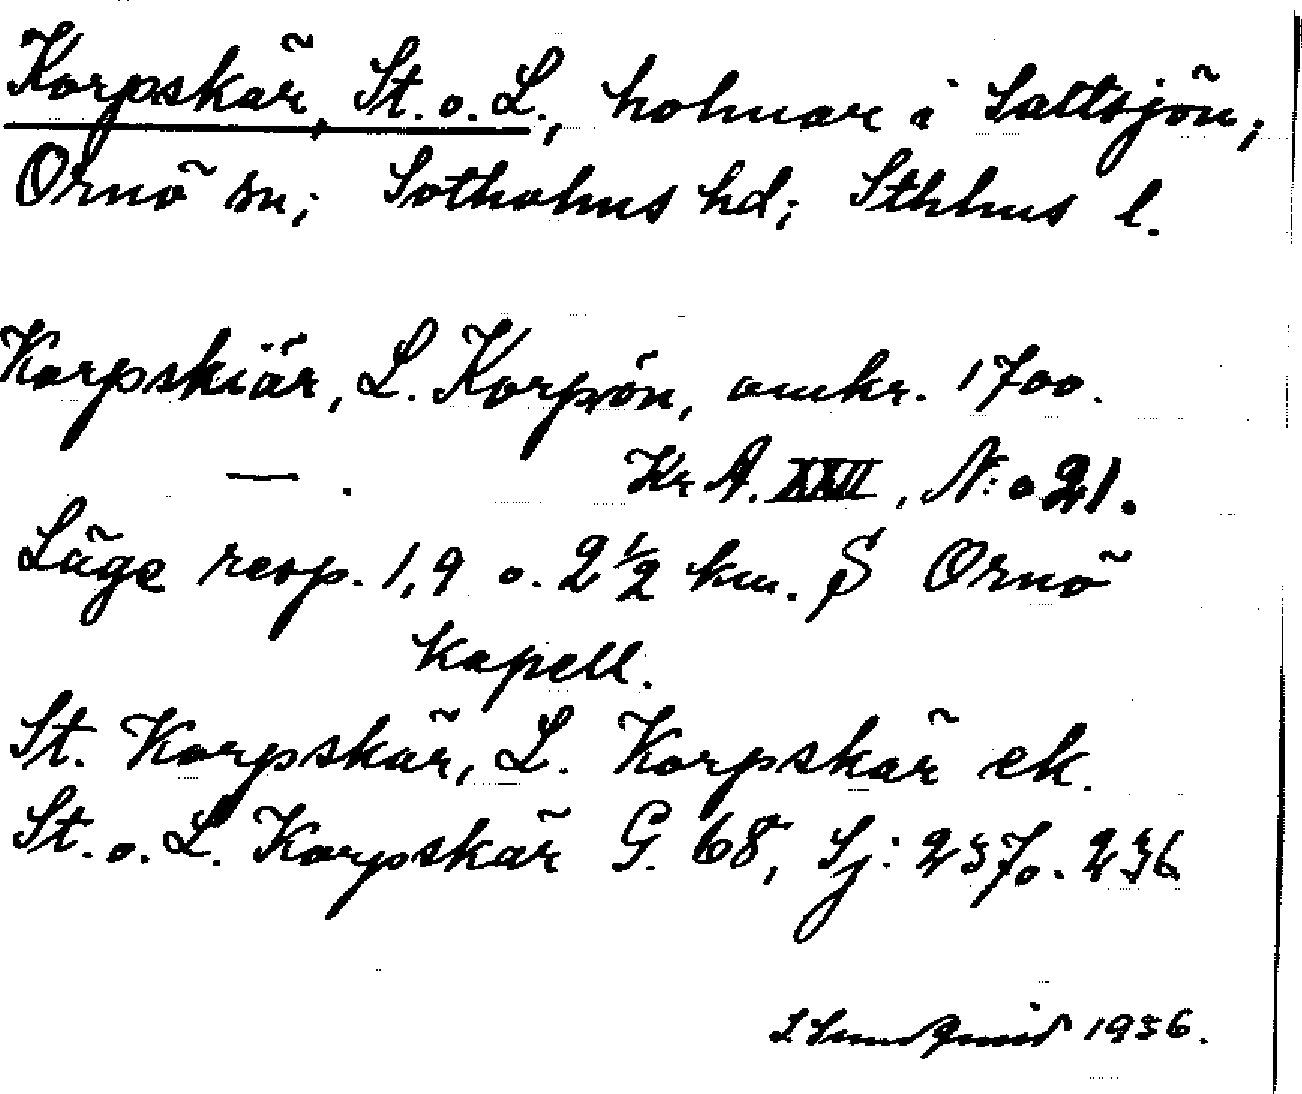 Korpskär, St. o. L., holmar i Saltsjön;
Ornö sn; Sotholms hd; Sthlms l.
Korpskiär, L. Korpön, omkr. 1700.
— . Kr. A. XXII, N:o 21.
Läge resp. 1,9 o. 2 1/2 km. S Ornö
kapell.
St. Korpskär, L. Korpskär ek.
St. o. L. Korpskär G. 68, Sj: 237 o. 236
Sundqvist 1936.